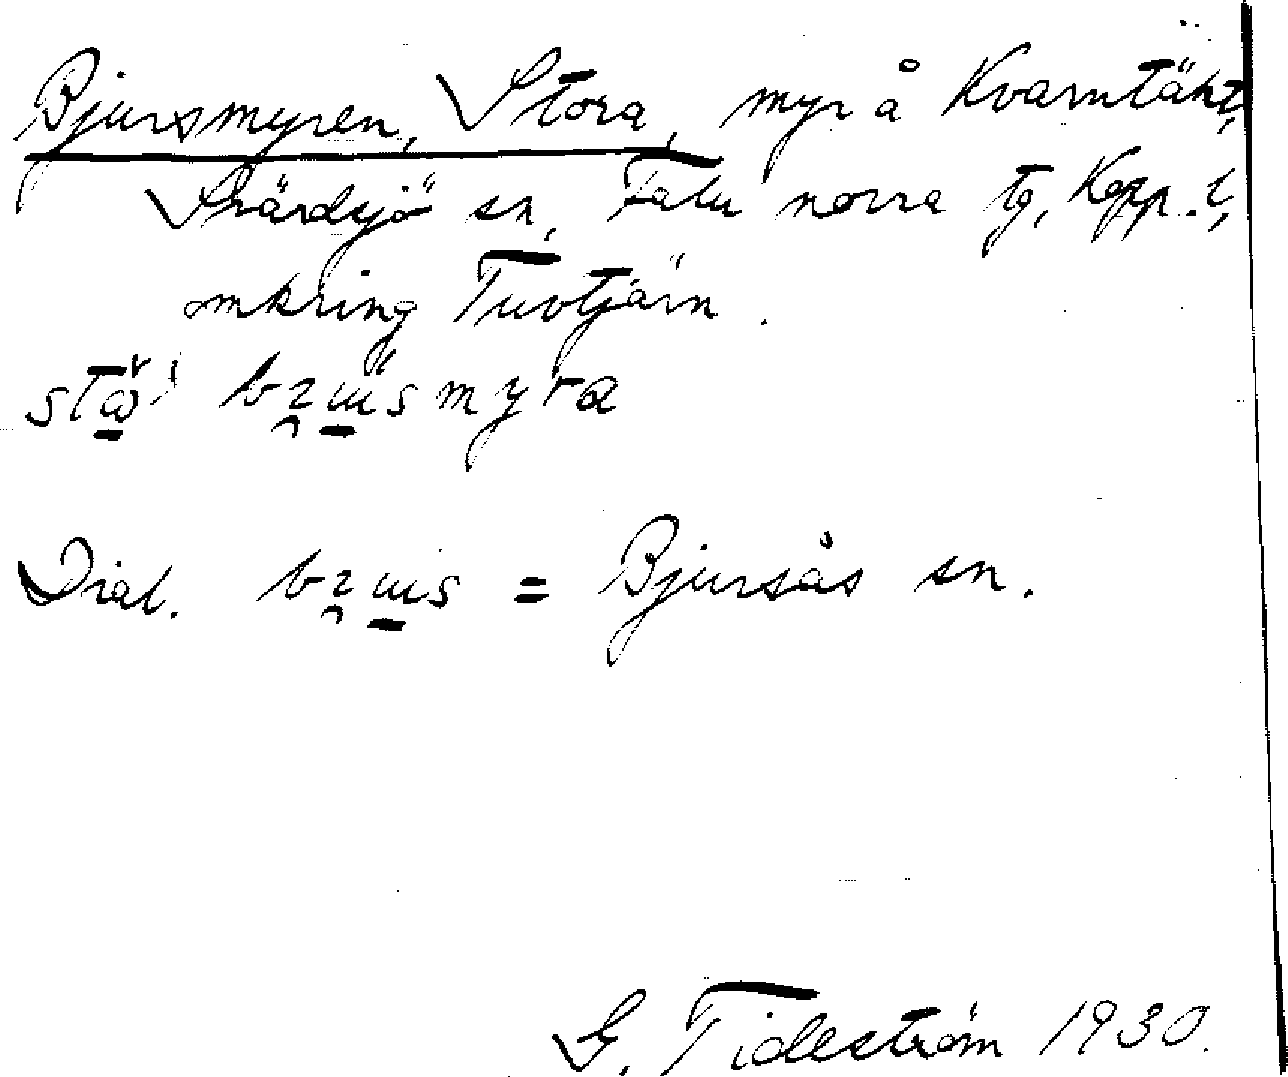 Bjursmyren, Stora, myr å Kvarntäkt,
Svärdsjö sn, Falu norra tg, Kopp. l,
omkring Tuvtjärn.
bzɯsmyra
Dial. bzɯs = Bjursås sn.
G. Tideström 1930.